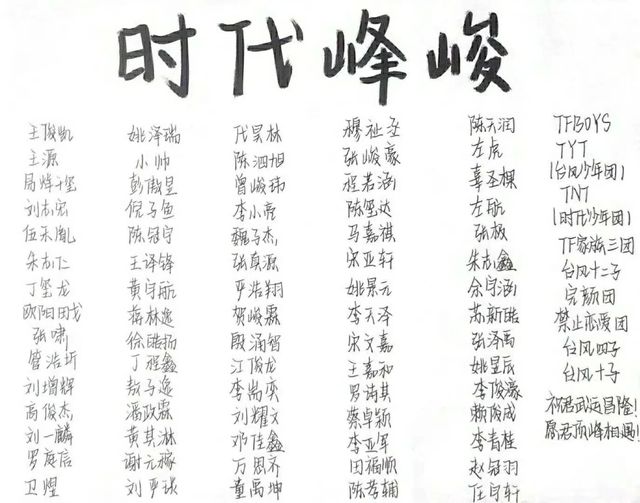 时代峰峻
王俊凯
王源
易烊千玺
刘志宏
伍朱胤
朱志仁
丁玺龙
欧阳田戈
张啸
管浩圻
刘增辉
高俊杰
刘一麟
罗庭信
卫煜
姚泽瑞
小帅
彭傲星
倪子鱼
陈冠宇
王译锋
黄宇航
蒋林逸
徐皓玥
丁程鑫
敖子逸
潘政霖
黄其淋
谢元稼
刘尹琰
代昊林
陈泗旭
曾峻玮
李小亮
魏子杰
张真源
严浩翔
贺峻霖
殷涵智
江俊龙
李嵩奕
刘耀文
邓佳鑫
万恩齐
童禹坤
穆祉丞
张峻豪
程若涵
陈玺达
马嘉祺
宋亚轩
姚景元
李天泽
宋文嘉
王嘉和
罗诗淇
蔡卓颖
李亚军
田福顺
陈孝辅
陈天润
左虎
辜圣棵
左航
张极
朱志鑫
余宇涵
苏新皓
张泽禹
姚昱辰
李俊濠
赖俊成
李春桂
赵冠羽
任宇轩
TFBOYS
TYT
(台风少年团)
TNT
(时代少年团)
TF家族三团
台风十二子
完颜团
禁止恋爱团
台风四子
台风十子
祝君武运昌隆!
愿君顶峰相遇!